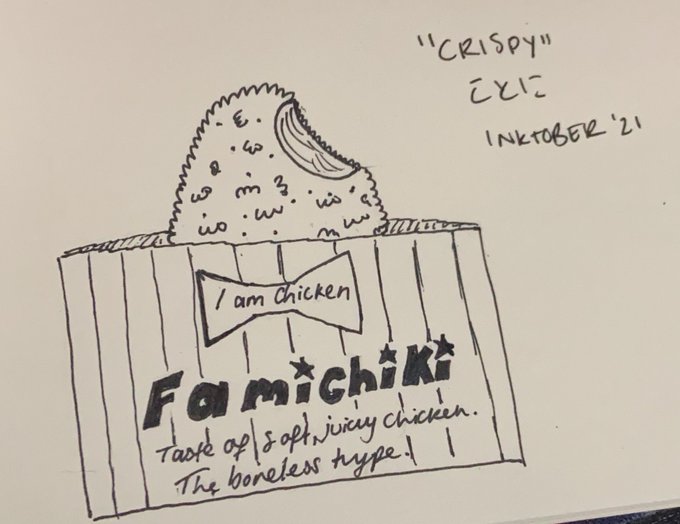 "CRISPY"
ことに
INKTOBER '21
I am Chicken
Famichiki
Taste of soft, juicy chicken.
The boneless type.